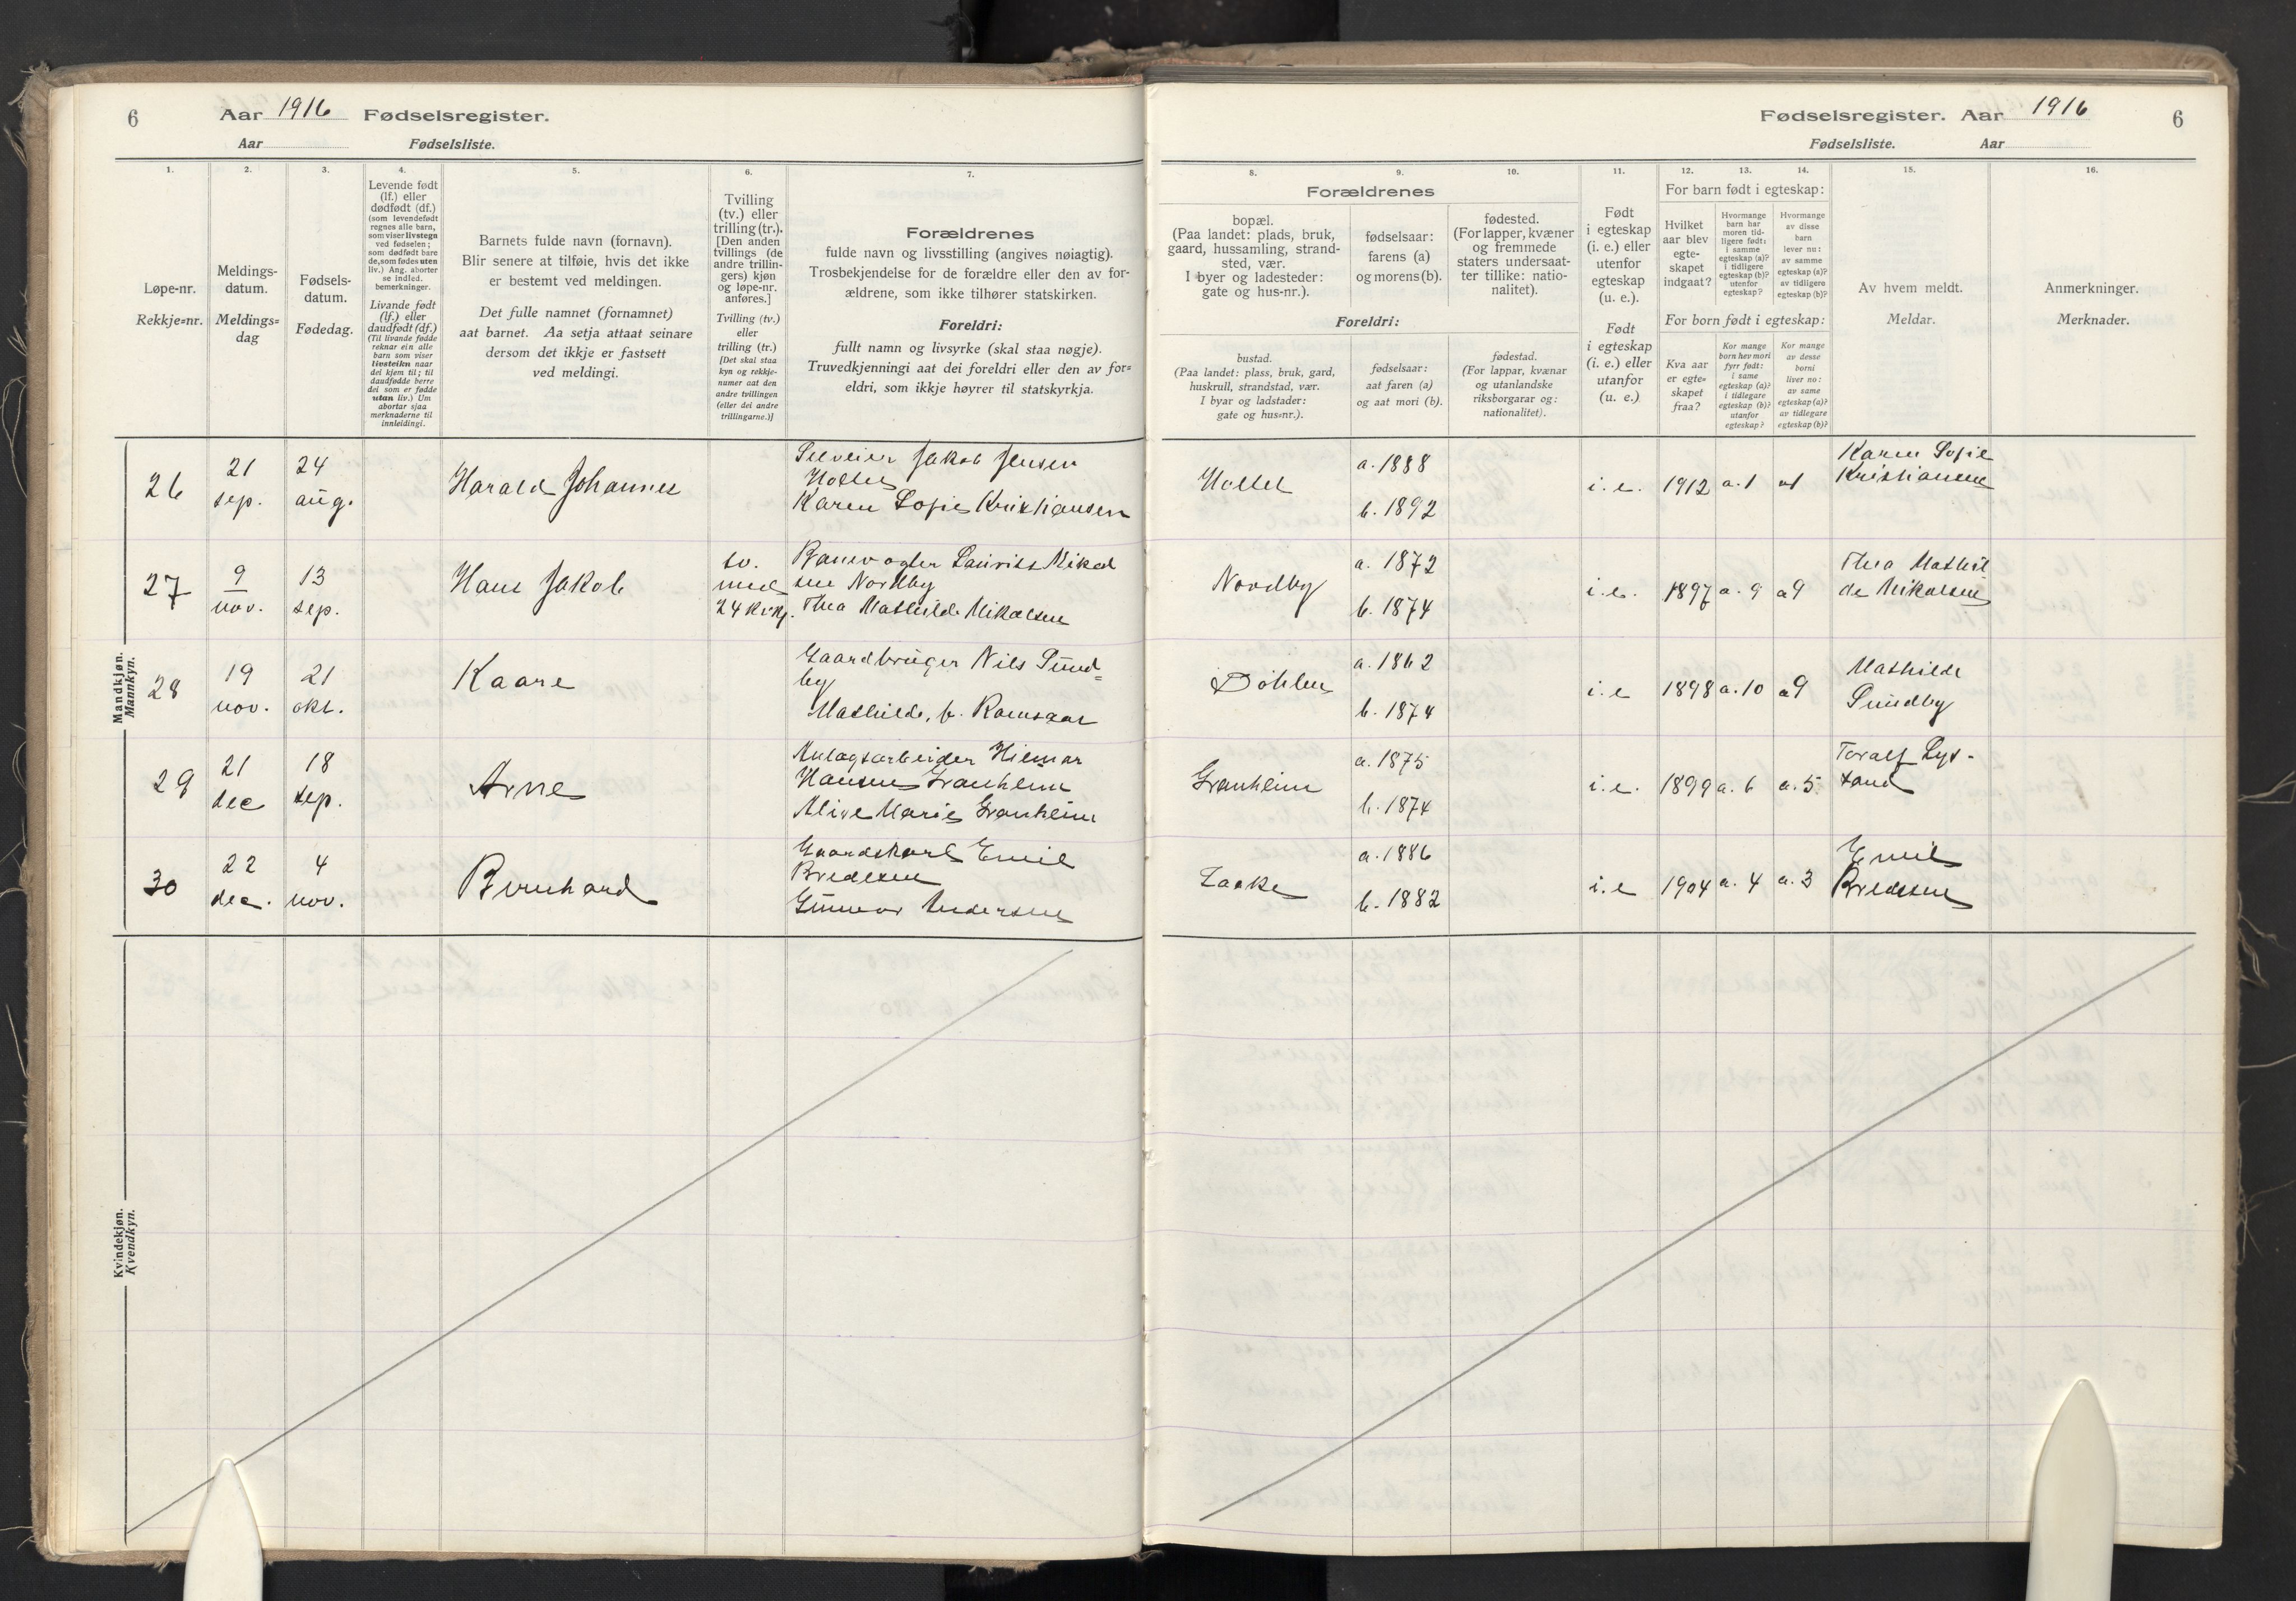 6
Aar 1916 Fødselsregister.
Aar Fødselsliste.
1.
2.
3.
4.
5.
6.
7.
Løpe-nr.
Rekkje=nr.
Meldings-
datum.
Meldings=
dag
Fødsels-
datum.
Fødedag.
Levende født
(lf.) eller
dødfødt (df.)
(som levendefødt
regnes alle barn,
som viser livstegn
ved fødselen;
som dødfødt bare
de, som fødes uten
liv.) Ang. aborter
se indled.
bemerkninger.
Livande født
(lf.) eller
daudfødt (df.)
(Til livande fødde
reknar ein alle
barn som viser
livsteikn naar
dei kjem til; til
daudfødde berre
dei som er fødde
utan liv.) Um
abortar sjaa
merknaderne til
innleidingi.
Barnets fulde navn (fornavn).
Blir senere at tilføie, hvis det ikke
er bestemt ved meldingen.
Det fulle namnet (fornamnet)
aat barnet. Aa setja attaat seinare
dersom det ikkje er fastsett
ved meldingi.
Tvilling
(tv.) eller
trilling (tr.).
[Den anden
tvillings (de
andre trillin-
gers) kjøn
og løpe-nr.
anføres.]
Tvilling (tv.)
eller
trilling (tr.)
[Det skal staa
kyn og rekkje-
numer aat den
andre tvillingen
(eller dei andre
trillingarne.)]
Forældrenes
fulde navn og livsstilling (angives nøiagtig).
Trosbekjendelse for de forældre eller den av for-
ældrene, som ikke tilhører statskirken.
Foreldri:
fullt namn og livsyrke (skal staa nøgje).
Truvedkjenningi aat dei foreldri eller den av for=
eldri, som ikkje høyrer til statskyrkja.
Mandkjøn.
Mannkyn.
26
21
sep.
24
aug.
Harald Johannes
Jakob Jensen
Holter
Karen Sofie Kristiansen
27
9
nov.
13
sep.
Hans Jakob
tv.
med
24 kvkj.
Banevogter Laurits Mikal
sen Nordby
Thea Mathilde Mikalsen
28
19
nov.
21
okt.
Kaare
Gaardbruger Nils Sund=
by
Mathilde, f. Ramsaar
29
21
dec
18
sep.
Arne
Anlagsarbeider Hilmar
Hansen Granheim
Alise Marie Granheim
30
22
dec.
4
nov.
Bernhard
Gaardskarl Emil
Bredesen
Gunvor Andersen
Kvindekjøn.
Kvendkyn.
Fødselsregister. Aar 1916
6
Fødselsliste. Aar
8.
9.
10.
11.
12.
13.
14.
15.
16.
Forældrenes
bopæl.
(Paa landet: plads, bruk,
gaard, hussamling, strand-
sted, vær.
I byer og ladesteder:
gate og hus-nr.).
fødselsaar:
farens (a)
og morens (b).
fødested.
(For lapper, kvæner
og fremmede
staters undersaat-
ter tillike: natio-
nalitet).
Foreldri:
bustad.
(Paa landet: plass, bruk, gard,
huskrull, strandstad, vær.
I byar og ladstader:
gate og hus=nr.).
fødselsaar:
aat faren (a)
og aat mori (b).
fødestad.
(For lappar, kvænar
og utanlandske
riksborgarar og:
nationalitet).
Født
i egteskap
(i. e.) eller
utenfor
egteskap
(u. e.).
Født
i egteskap
(i. e.) eller
utanfor
(u. e.)
For barn født i egteskap:
Hvilket
aar blev
egte-
skapet
indgaat?
Hvormange
barn har
moren tid-
ligere født:
i samme
egteskap (a)?
i tidligere
egteskap (b)?
utenfor
egteskap?
Hvormange
av disse
barn
lever nu:
av samme
egteskap (a)?
av tidligere
egteskap (b)?
For born født i egteskap:
Kva aar
er egte=
skapet
fraa?
Kor mange
born hev mori
fyrr født:
i same
egteskap (a)?
i tidlegare
egteskap (b)?
utanfor
egteskap?
Kor mange
av desse
borni
liver no:
av same
egteskap (a)?
av tidlegare
egteskap (b)?
Av hvem meldt.
Meldar.
Anmerkninger.
Merknader.
Holter
a. 1888
b. 1892
i. e.
1912
a. 1
a1
Karen Sofie
Kristiansen
Nordby
a. 1872
b. 1874
i. e.
1897
a. 9
a9
Thea Mathil
de Mikalsen
Døhlen
a. 1862
b. 1874
i. e
1898
a. 10
a9
Mathilde
Sundby
Granheim
a. 1875
b. 1874
i. e.
1899
a. 6
a. 5
Toralf Lys-
sand
Laake
a. 1886
b. 1882
i. e
1904
a. 4
a. 3
Emil
Bredesen